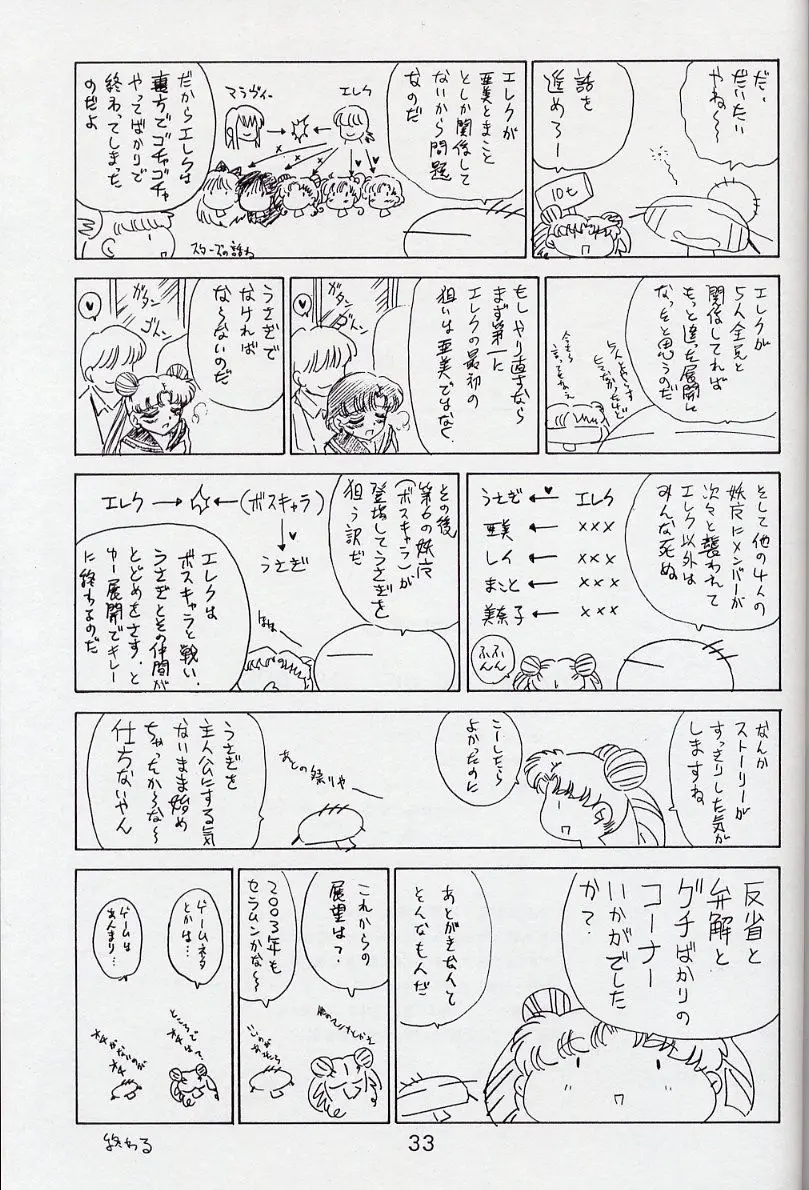 だ、
だいたい
やね〜〜
話を
進めろー
10t
エレクが
亜美とまこと
としか関係して
ないから問題
なのだ
エレク
マラヴィー
だからエレクは
裏方でゴチャゴチャ
やってばかりで
終わってしまった
のだよ
スターズの話ね
エレクが
5人全員と
関係してれば
もっと違った展開に
なったと思うのだ
もしやり直すなら
まず第一に
エレクの最初の
狙いは亜美ではなく、
ガタン
ゴトン
うさぎで
なければ
な〜らないのだ
ガタン
ゴトン
そして他の4人の
妖魔にメンバーが
次々と襲われて
エレク以外は
みんな死ぬ
うさぎ ← エレク
亜美 ← ×××
レイ ← ×××
まこと ← ×××
美奈子 ← ×××
ふんふん
その後
第6の妖魔
(ボスキャラ)が
登場してうさぎを
狙う訳だ
エレク → ☆ ← (ボスキャラ)
うさぎ
ほほ
エレクは
ボスキャラと戦い、
うさぎとその仲間が
とどめをさす、と
ゆー展開でキレー
に終わるのだ
なんか
ストーリーが
すっきりした気が
しますね
こーしたら
よかったのに
あとの祭りや
うさぎを
主人公にする気
ないまま始め
ちゃったからな〜
仕方ないやん
反省と
弁解と
グチばかりの
コーナー
いかがでした
か?
あとがきなんて
そんなもんだ
これからの
展望は?
2003年も
セラムンかな〜〜
ゲームネタ
とかは…
ゲームは
あんまり…
ところで
オチは?
オチがないのが
オチ
終わる
33